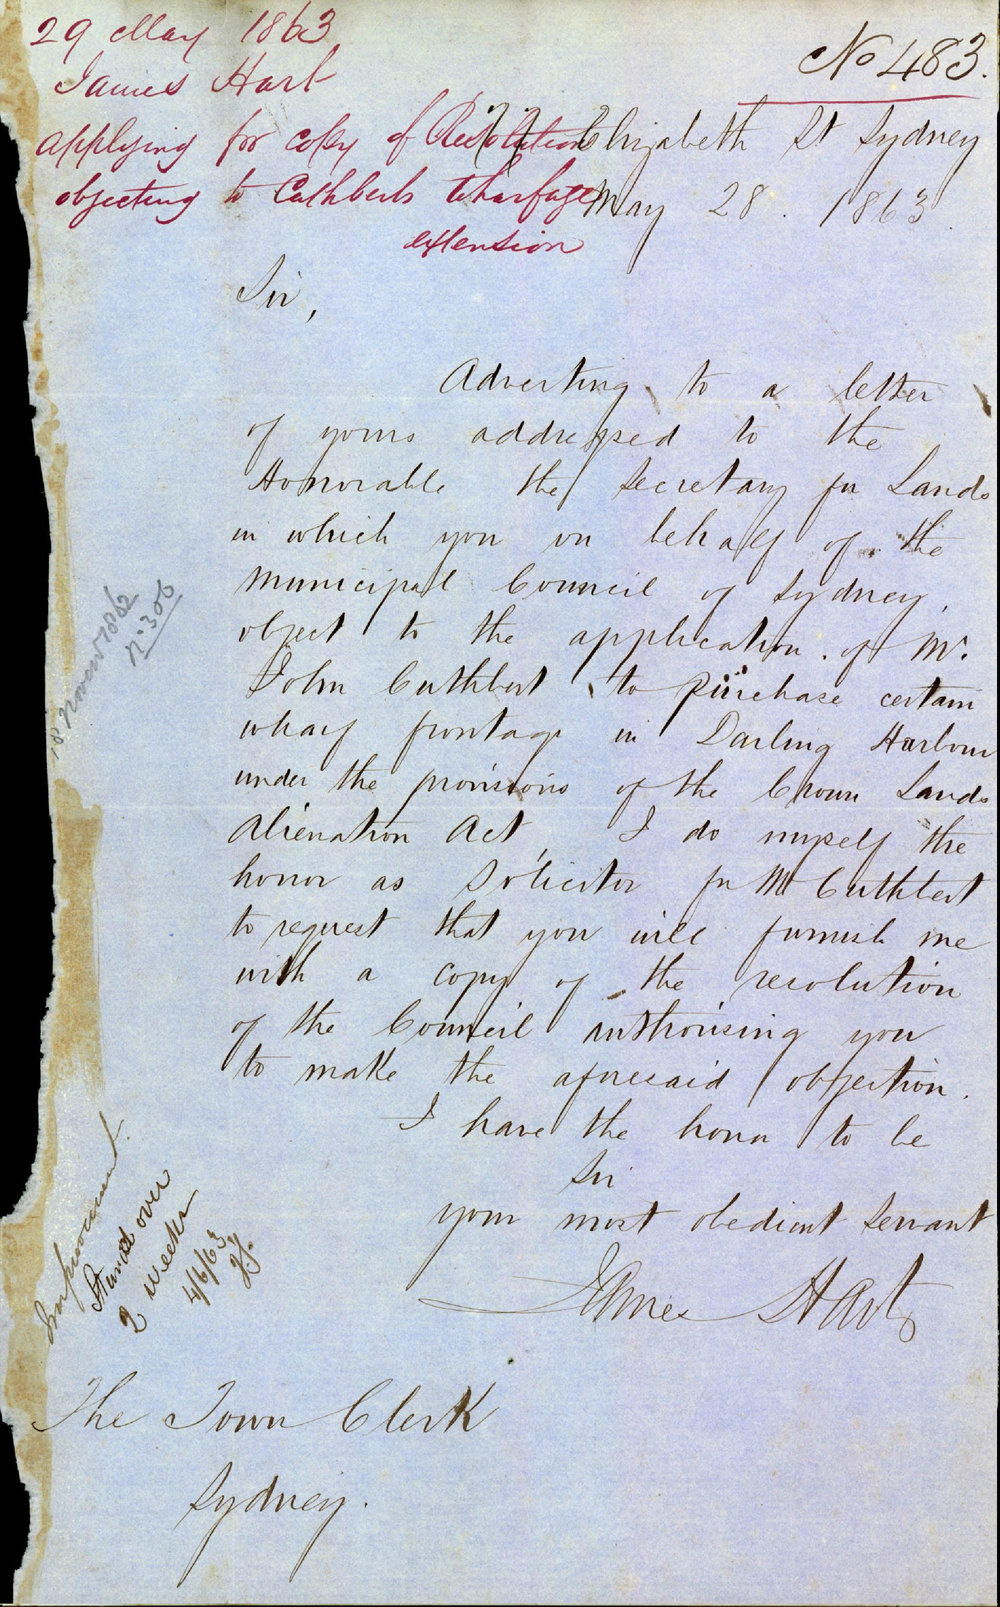 29 May 1863
James Hart
applying for copy of Resolution
objecting to Cuthberts Wharfage
extension
No 483.
Elizabeth St Sydney
May 28. 1863
Sir,
Adverting to a letter
of yours addressed to the
Honorable the Secretary for Lands
in which you on behalf of the
Municipal Council of Sydney,
object to the application of Mr.
John Cuthbert to purchase certain
wharf frontage in Darling Harbour
under the provisions of the Crown Lands
Alienation Act, I do myself the
honor as Solicitor for Mr Cuthbert
to request that you will furnish me
with a copy of the resolution
of the Council authorising you
to make the aforesaid objection.
I have the honor to be
Sir
your most obedient servant
James Hart
The Town Clerk
Sydney.
18 Novem 1862
No 306
Improvement.
Stand over
2 weeks
4/6/63